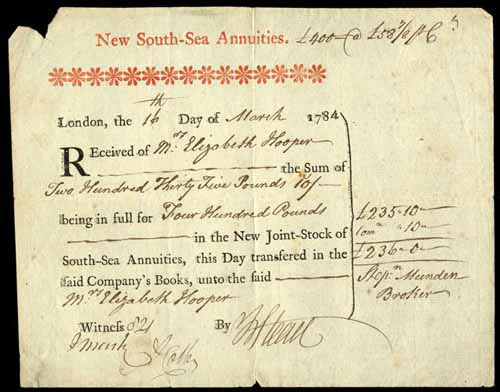 New South-Sea Annuities. £400 @ £58 7/8 pr Ct
London, the 16th Day of March 1784
Received of Mrs Elizabeth Hooper
the Sum of
Two Hundred Thirty Five Pounds 10/-
being in full for Four Hundred Pounds
in the New Joint-Stock of
South-Sea Annuities, this Day transfered in the
said Company's Books, unto the said
Mrs Elizabeth Hooper
Witness
By
£235-10-
Comn -10-
£236-0-
Stepn Munden
Broker